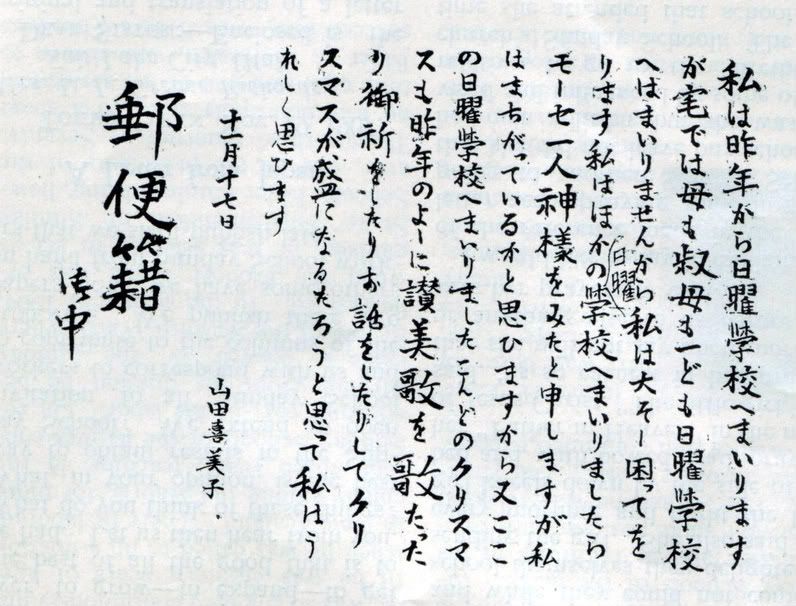 私は昨年から日曜學校へまいります
が宅では母も叔母も一ども日曜學校
へはまいりませんから私は大そー困ってを
ります私はほかの日曜學校へまいりましたら
モセ人神様をみたと申しますが私
はまちがっているかと思ひますから又ここ
の日曜學校へまいりました どのクリスマ
スも昨年のよーに讃美歌を歌たった
り御祈をしたりお話をしたりしてクリ
スマスが盛になるだろうと思って私はう
れしく思ひます
十一月十七日
山田喜美子.
郵便籍
御中